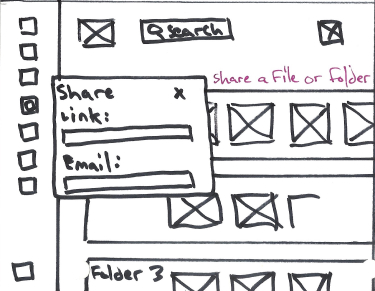 Search
share a File or folder
Share x
Link:
Email:
Folder 3